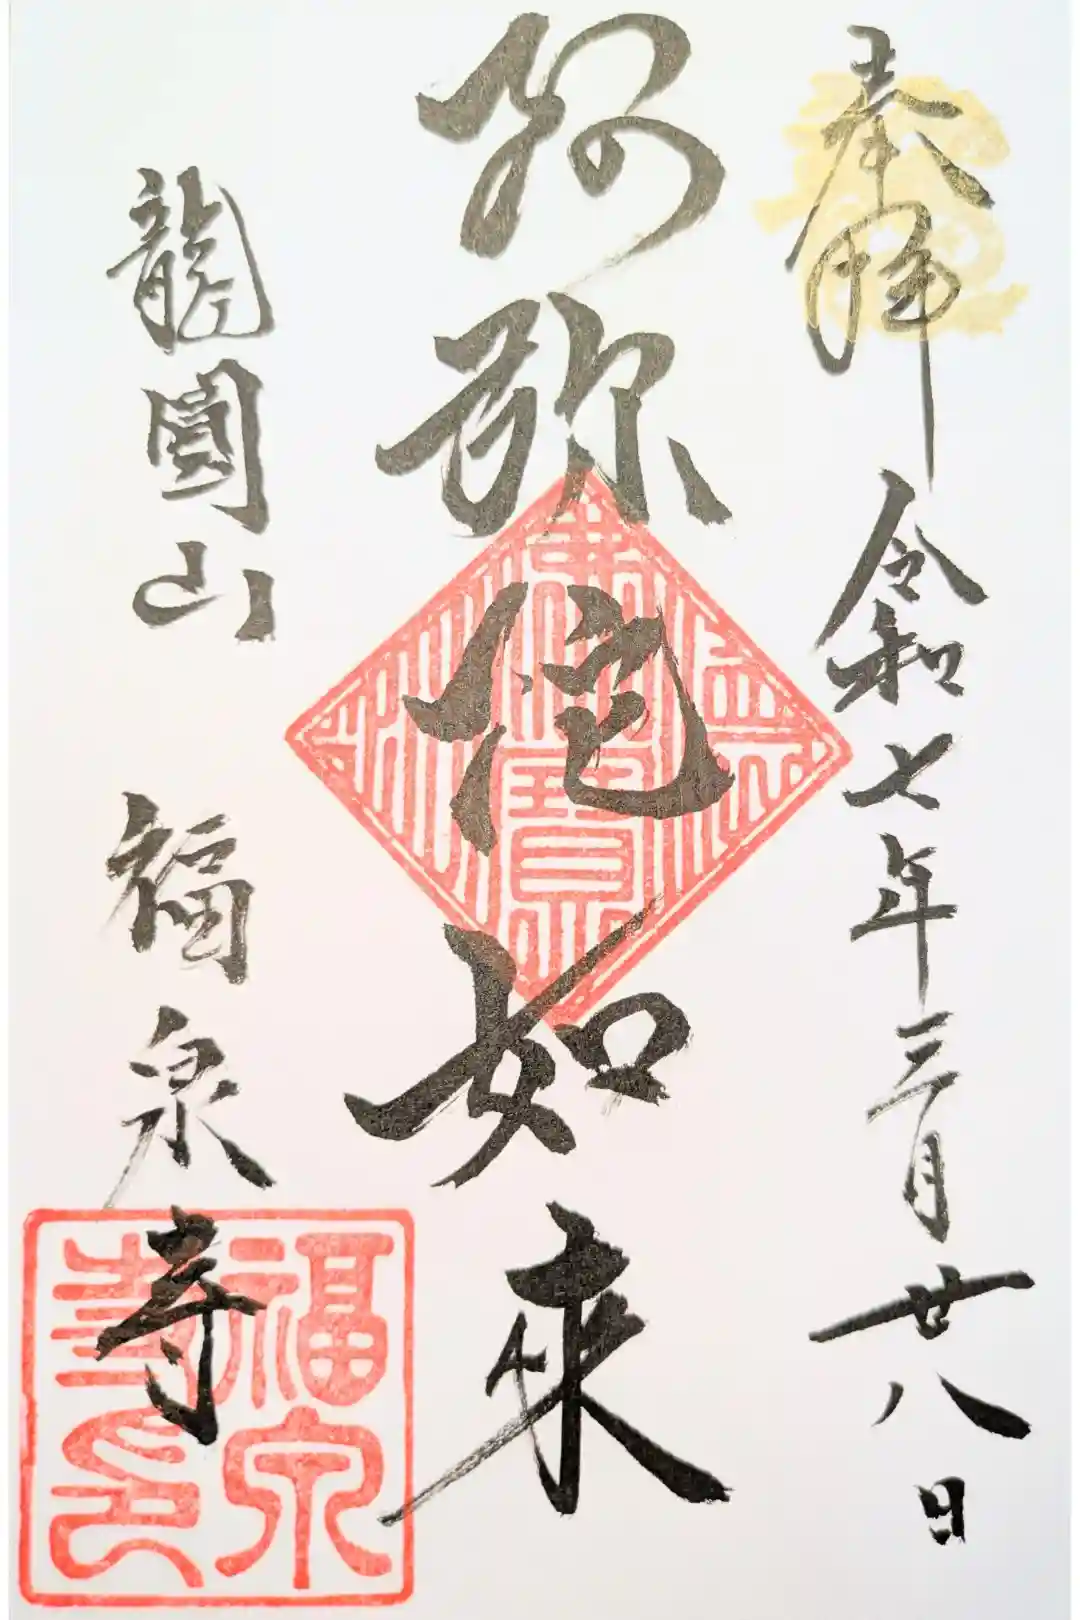 奉拝 令和七年三月廿八日
阿弥佗如来
龍圓山 福泉寺
佛法僧寶
福泉寺印